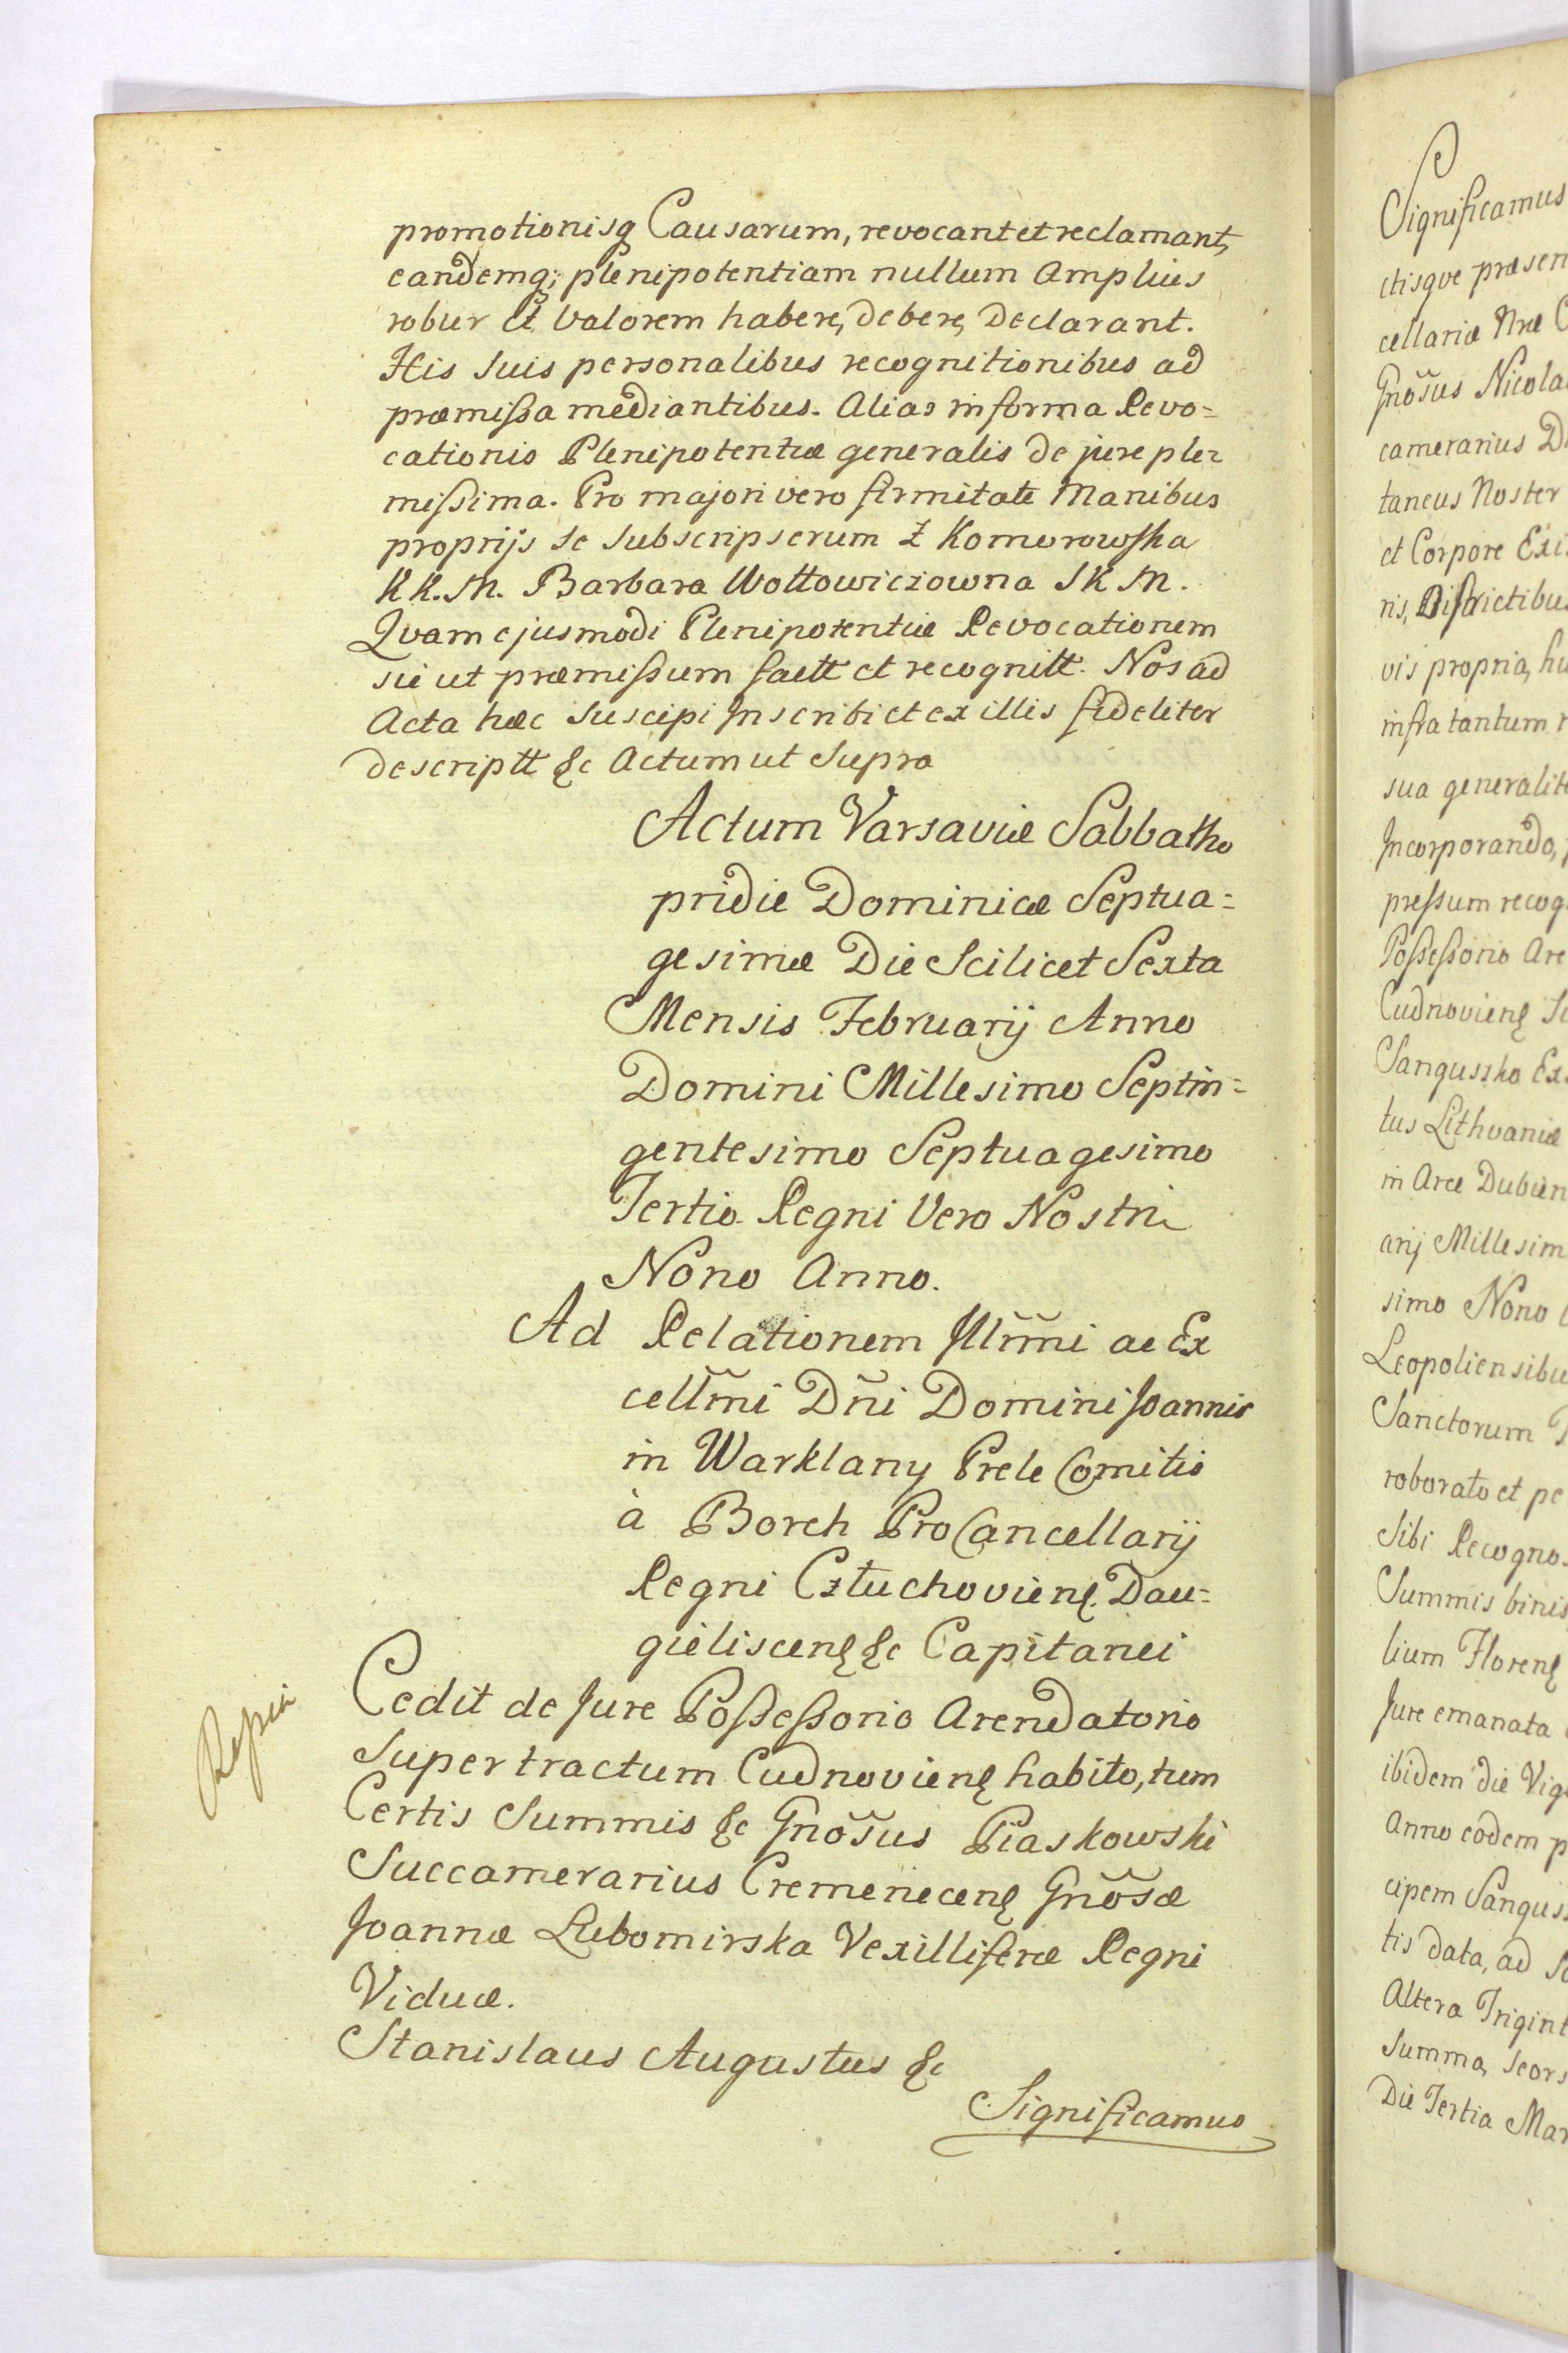 promotionisq Causarum, revocant et reclamant,
eandemq; plenipotentiam nullum Amplius
robur et Valorem habere, debere, Declarant.
His Suis personalibus recognitionibus ad
præmissa mediantibus. Alias in forma Revo=
cationis Plenipotentiæ generalis de jure ple=
missima. Pro majori vero firmitate Manibus
proprijs se Subscripserum Z Komorowska
K K. M. Barbara Wołłowiczowna S K M.
Qvam ejusmodi Plenipotentiæ Revocationem
sic ut præmissum factt et recognitt. Nos ad
Acta hæc Suscipi Inscribi et ex illis fideliter
descriptt &c Actum ut Supra
Actum Varsaviæ Sabbatho
pridie Dominicæ Septua=
gesimæ Die Scilicet Sexta
Mensis Februarij Anno
Domini Millesimo Septin=
gentesimo Septuagesimo
Tertio Regni Vero Nostri
Nono Anno.
Ad Relationem Illm̃mi ac Ex
cellm̃i Dñi Domini Joannis
in Warklany Prele Comitis
à Borch ProCancellarij
Regni Człuchovienș Dau=
gieliscenș &c Capitanei
Cedit de Jure Possessorio Arendatorio
Super tractum Cudnovienș habito, tum
Certis Summis &c Gnõsus Piaskowski
Succamerarius Cremenecenș Gnõsæ
Joannæ Lubomirska Vexilliferæ Regni
Viduæ.
Stanislaus Augustus &c
Significamus
Significamus
ctisqve præsen
cellariæ Nræ C
Gnõsus Nicola
camerarius D
taneus Noster
et Corpore Exi
ris, Districtibus
vis propria, hu
infra tantum r
sua generalit
Incorporando,
pressum recog
Possessorio Are
Cudnovienș Su
Sanguszko Ex
tus Lithvaniæ
in Arce Dubien
arij Millesim
simo Nono
Leopoliensibu
Sanctorum
roborato et pe
Sibi Recogno
Summis binis
lium Florenș
Jure emanata
ibidem die Vig
Anno eodem p
cipem Sangus
tis data, ad
Altera Trigint
Summa, Seors
Die Tertia Mar